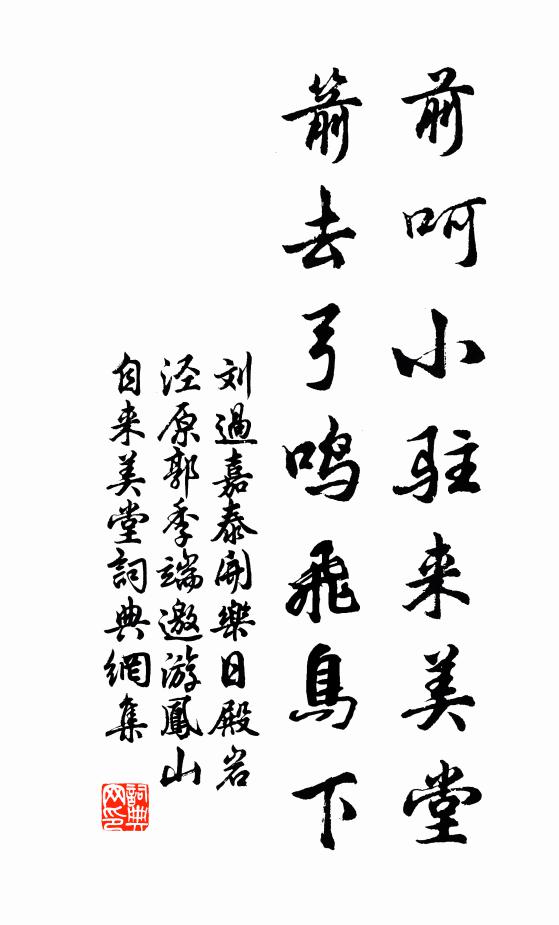 前呵小驻来美堂
箭去弓鸣飛鳥下
刘過嘉泰開樂日殿岩
泾原郭季端邀游鳳山
自来美堂詞典網集
詞典
网印